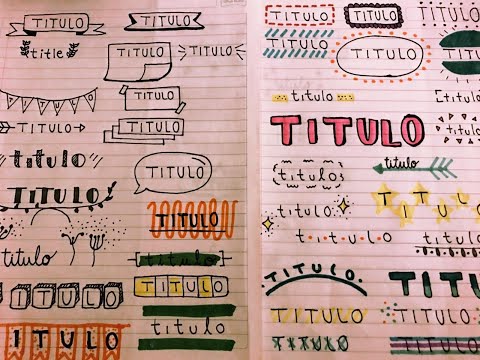 TITULO
TITULO
title
TITULO
TITULO
TITULO
TITULO
TITULO
titulo
TITULO
TITULO
TITULO
titulo
[titulo]
TITULO
TITULO
ITULO
titulo
TITULO
TITULO
TITULO
TITULO
TITULO
titulo
[titulo]
TITULO
TITULO
titulo
titulo
titulo
TITULO
titulo
titulo
TITULO
TITULO
TITULO
TITULO
TITULO
TITULO